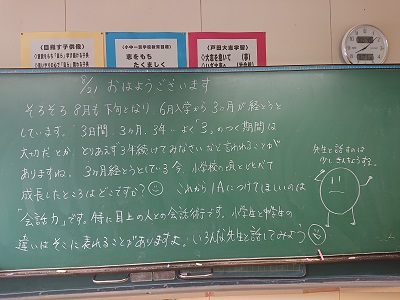 《目指す子供像》
小中一貫学校教育目標
志をもち
たくましく
《戸田大志学習》
◇大志を抱いて (夢)
8/21 おはようございます
そろそろ8月も下旬となり、6月入学から3ヶ月が経とうと
しています。3日間、3ヶ月、3年…よく「3」のつく期間は
大切だとか、とりあえず3年続けてみなさいなど言われることが
ありますね。3ヶ月経とうとしている今、小学校の頃とくらべて
成長したところはどこですか? これから1Aにつけてほしいのは
「会話力」です。特に目上の人との会話術です。小学生と中学生の
違いはそこに表れることがありますよ。いろんな先生と話してみよう
先生と話すのは
少しきんちょうする。